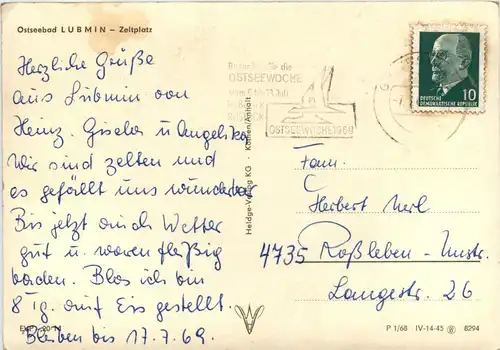 Ostseebad LUBMIN – Zeltplatz
Herzliche Grüße
aus Lubmin von
Heinz, Gisela u Angelika
Wir sind zelten und
es gefällt uns wunderbar
Bis jetzt auch Wetter
gut u. waren fleißig
baden. Blos ich bin
8 Tg. auf Eis gestellt.
Bleiben bis 17.7.69.
Heldge-Verlag KG · Köthen/Anhalt
für die
OSTSEEWOCHE
OSTSEEWOCHE 1969
DEUTSCHE
DEMOKRATISCHE REPUBLIK
10
Fam.
Herbert
4735 Roßleben-Unstr.
Langestr. 26
P 1/68 IV-14-45 8294